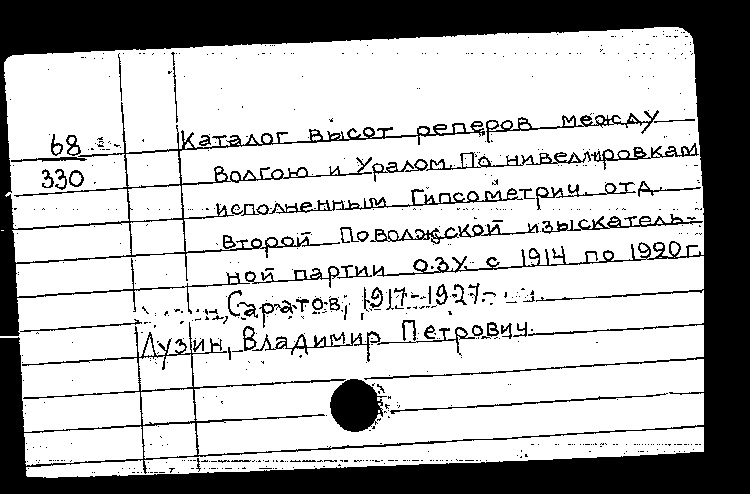 68 Каталог высот реперов между
330 Волгою и Уралом. По нивеллировкам
исполненным Гипсометрич. отд.
Второй Поволжской изыскатель-
ной партии О.З.У. с 1914 по 1920 г.
Саратов, 1917-1927.
Лузин, Владимир Петрович.